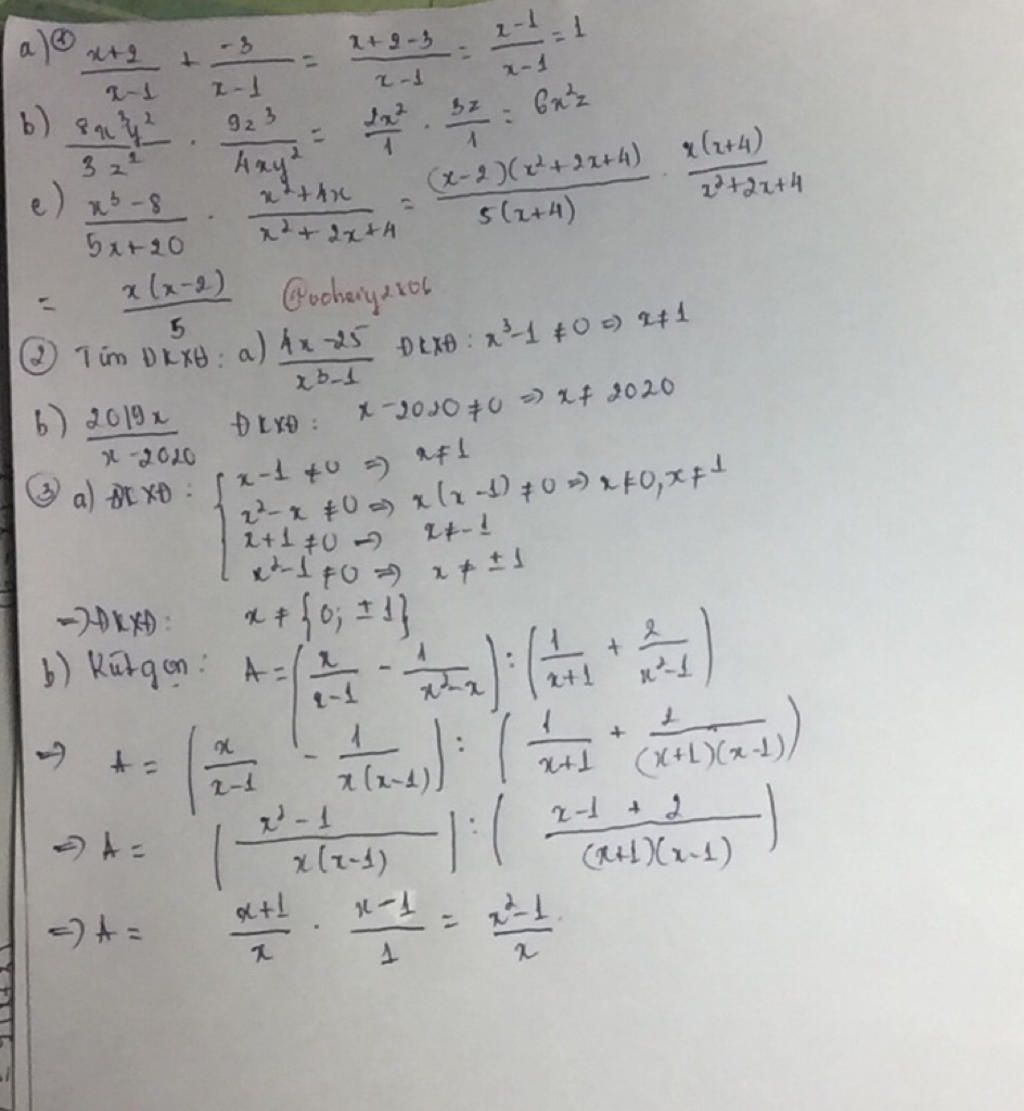 a) ① (x+2)/(x-1) + (-3)/(x-1) = (x+2-3)/(x-1) = (x-1)/(x-1) = 1
b) (8x³y²)/(3z²) . (9z³)/(4xy²) = (2x²)/1 . (3z)/1 = 6x²z
c) (x³-8)/(5x+20) . (x²+4x)/(x²+2x+4) = ((x-2)(x²+2x+4))/(5(x+4)) . (x(x+4))/(x²+2x+4)
= (x(x-2))/5
② Tìm ĐKXĐ: a) (4x-25)/(x³-1) ĐKXĐ: x³-1 ≠ 0 => x ≠ 1
b) (2019x)/(x-2020) ĐKXĐ: x-2020 ≠ 0 => x ≠ 2020
③ a) ĐKXĐ: { x-1 ≠ 0 => x ≠ 1
x²-x ≠ 0 => x(x-1) ≠ 0 => x ≠ 0, x ≠ 1
x+1 ≠ 0 => x ≠ -1
x²-1 ≠ 0 => x ≠ ±1
=> ĐKXĐ: x ≠ {0; ±1}
b) Rút gọn: A = (x/(x-1) - 1/(x²-x)) : (1/(x+1) + 2/(x²-1))
=> A = (x/(x-1) - 1/(x(x-1))) : (1/(x+1) + 2/((x+1)(x-1)))
=> A = ((x²-1)/(x(x-1))) : ((x-1+2)/((x+1)(x-1)))
=> A = (x+1)/x . (x-1)/1 = (x²-1)/x.